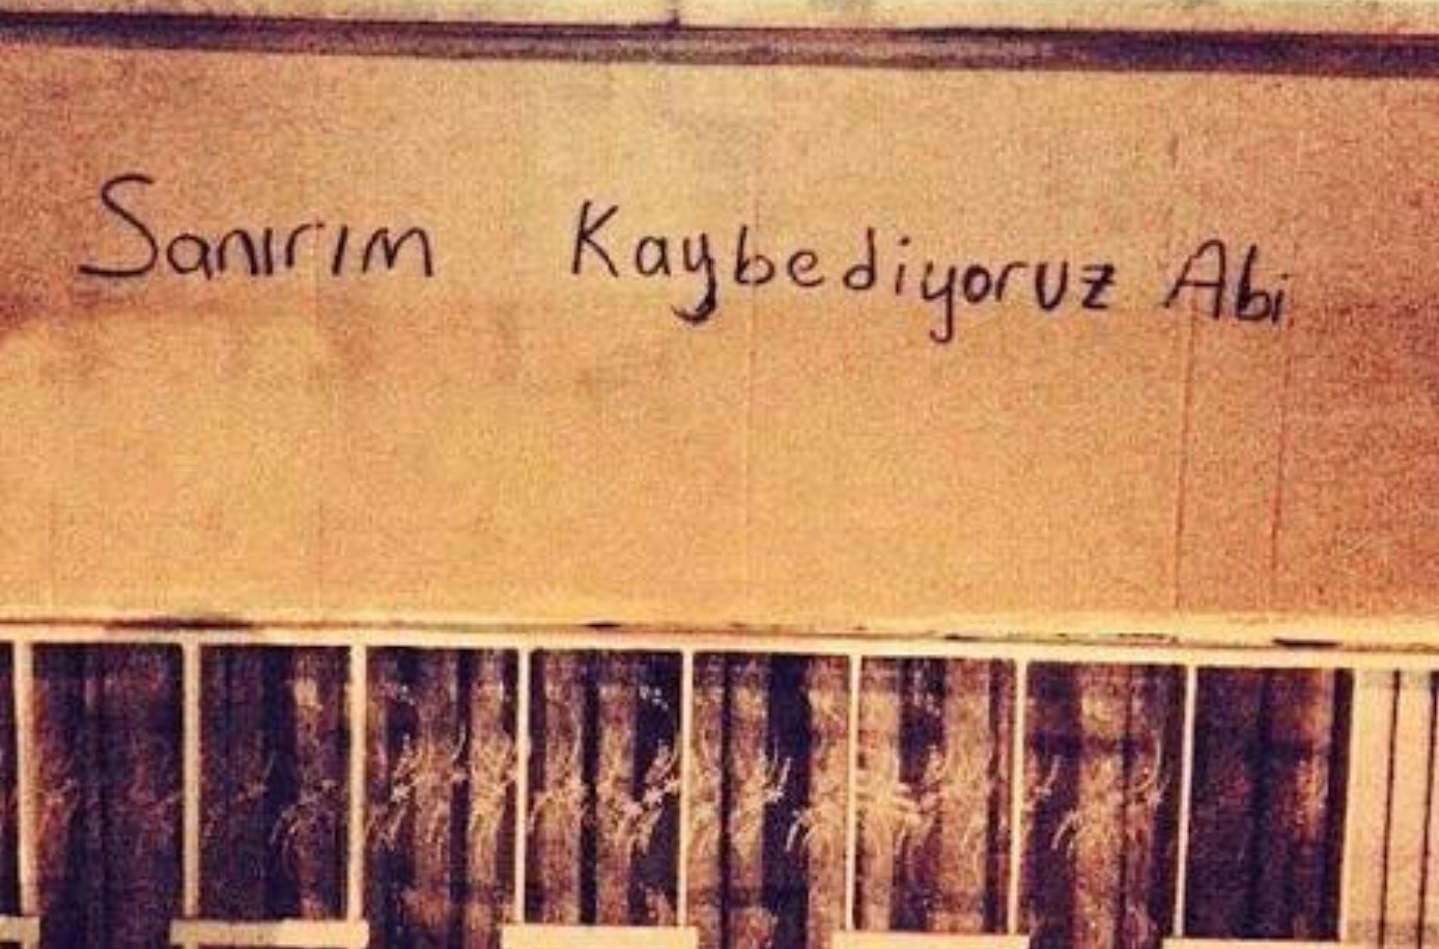 Sanırım Kaybediyoruz Abi